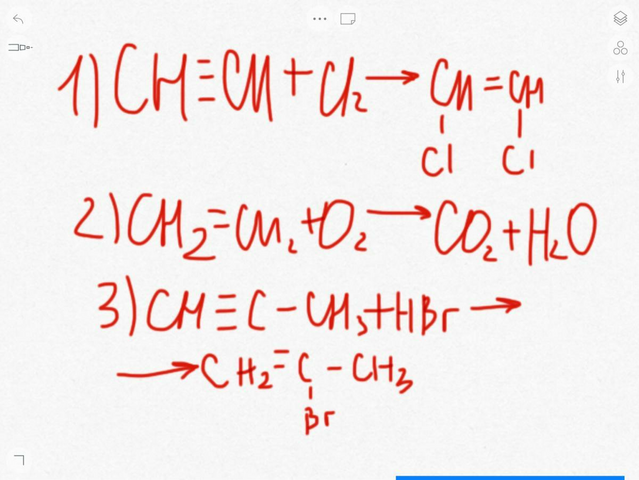 1) CH≡CH + Cl₂ → CH = CH
Cl Cl
2) CH₂=CH₂ + O₂ → CO₂ + H₂O
3) CH ≡ C – CH₃ + HBr →
→ CH₂ = C – CH₃
Br